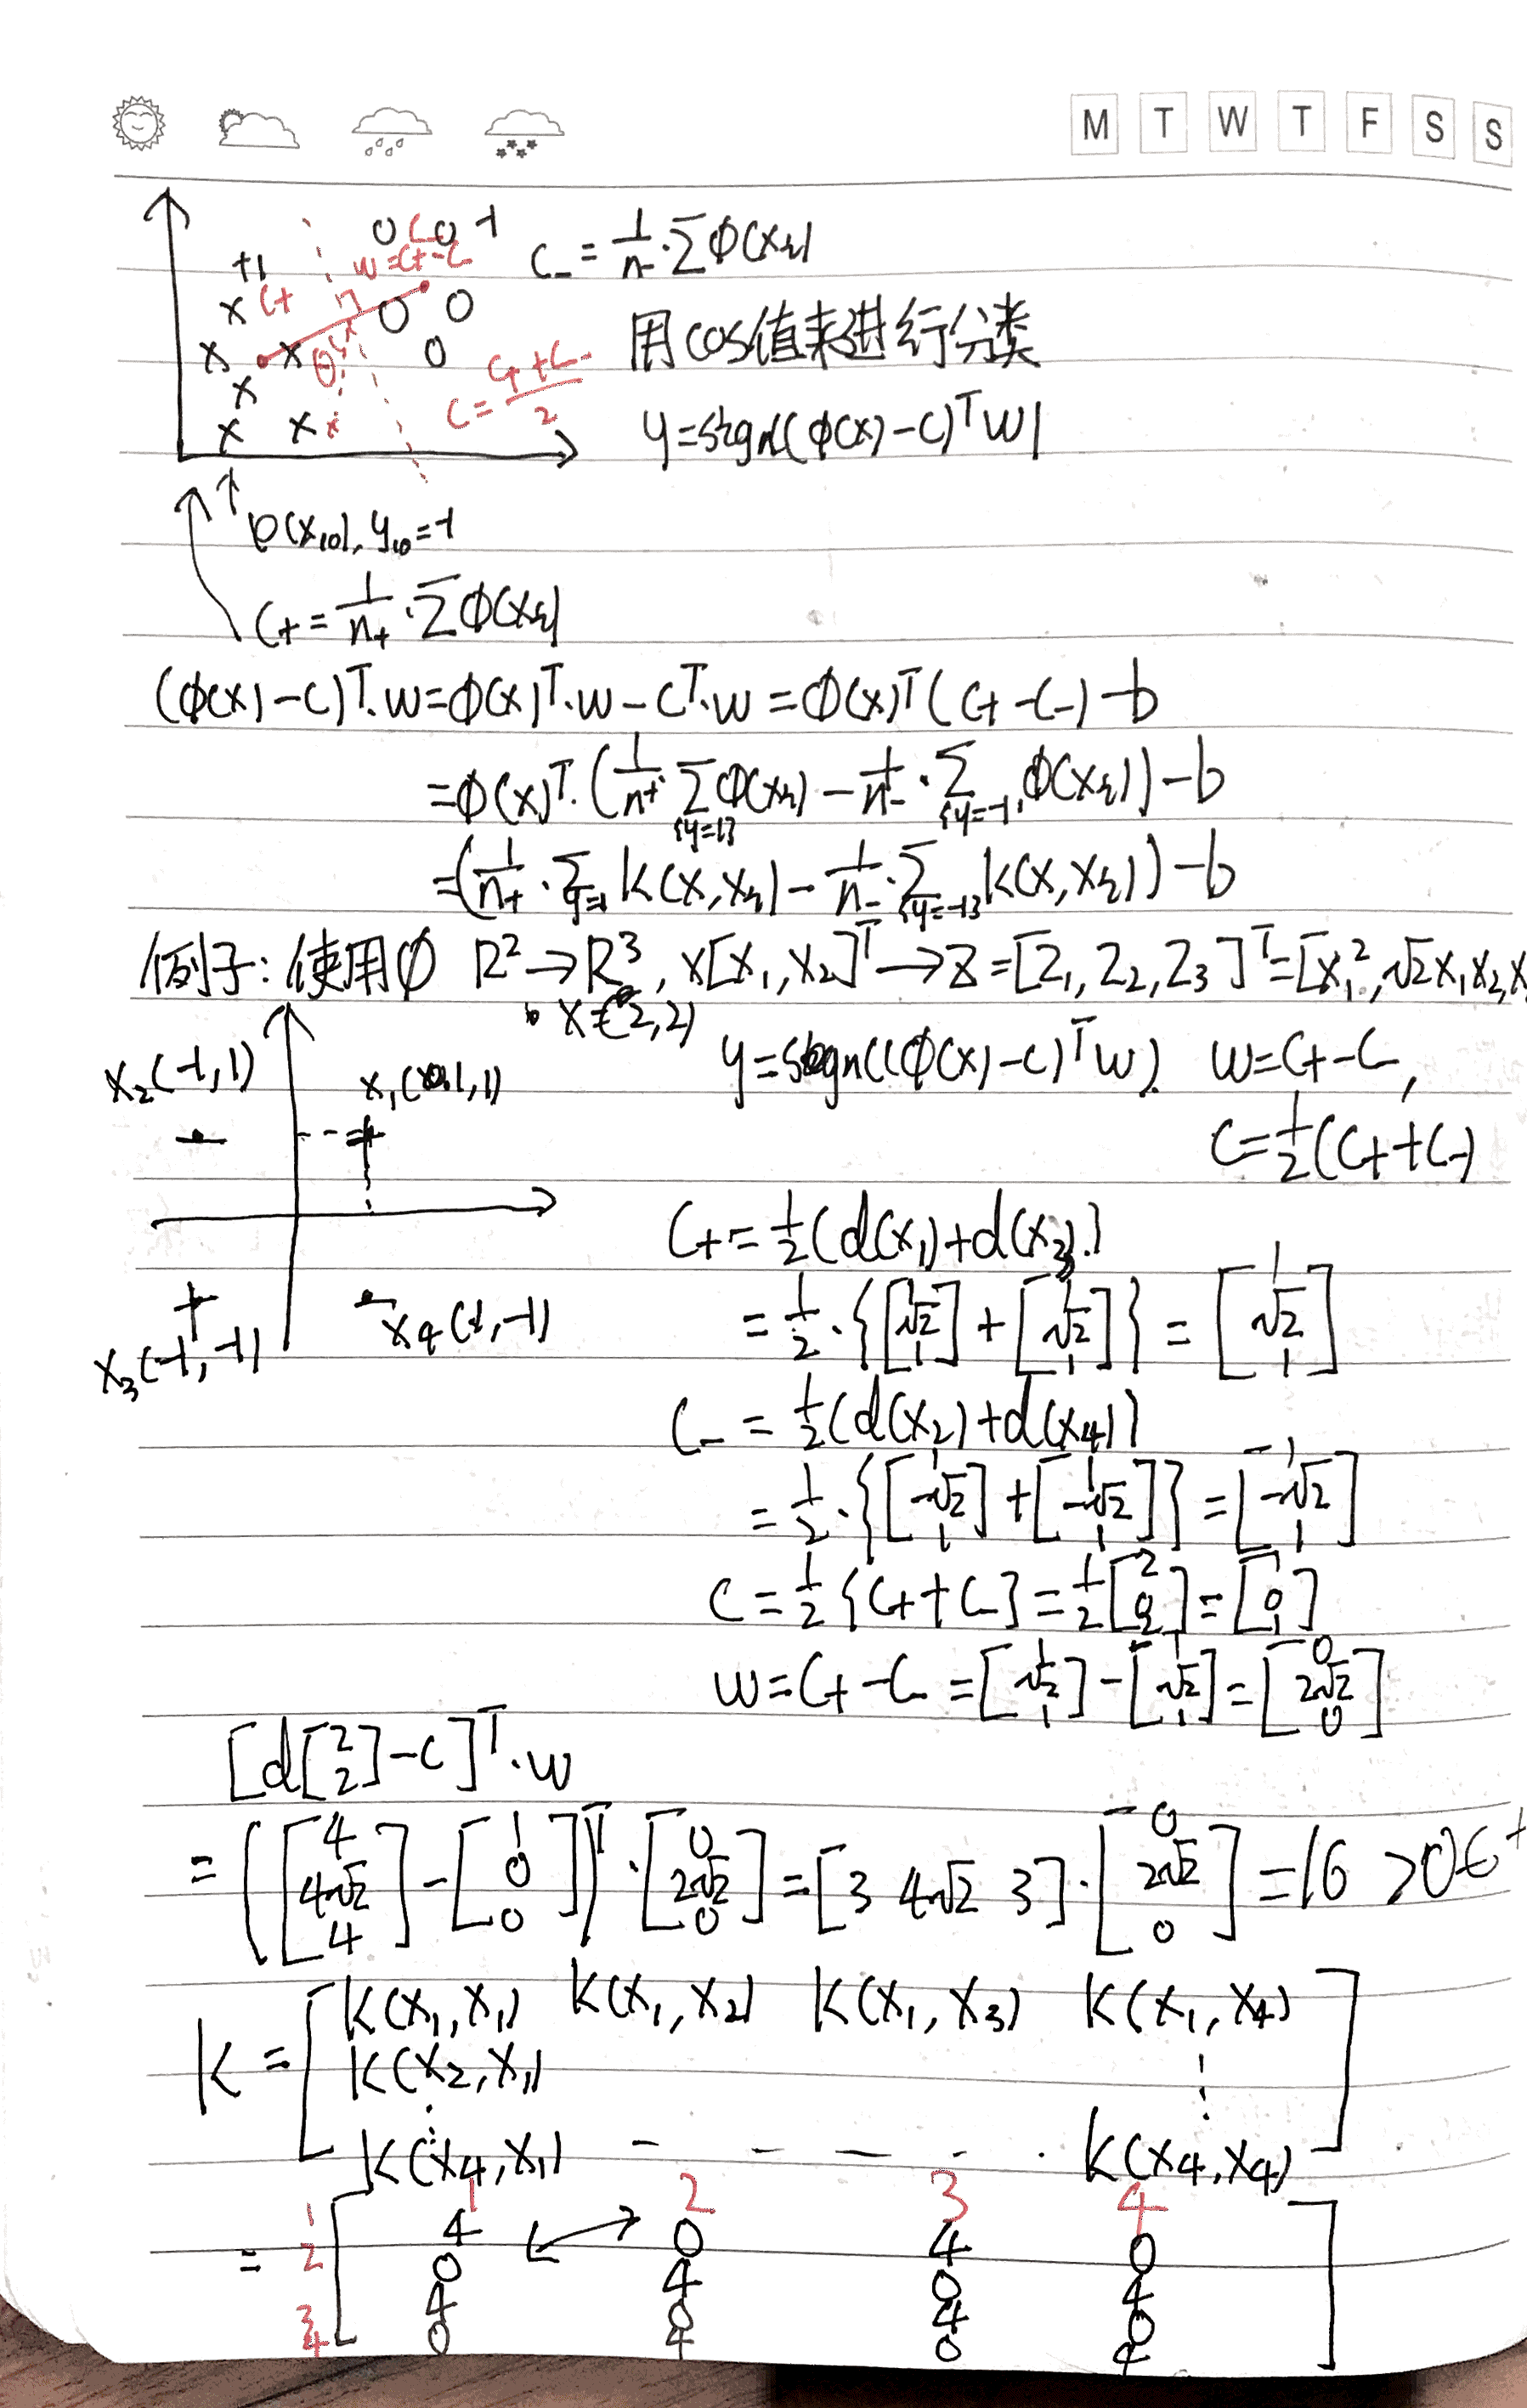 M T W T F S S
+1
0 0 -1
C-
w=C+-C-
C- = 1/n- · Σφ(xi)
x C+
0 0
用cos值来进行分类
x x θ 0
C= (C+ + C-)/2
x
x x x
y=sign((φ(x)-c)ᵀw)
φ(x10), y10=-1
C+ = 1/n+ · Σφ(xi)
(φ(x)-c)ᵀ·w=φ(x)ᵀ·w-cᵀ·w=φ(x)ᵀ(C+-C-)-b
=φ(x)ᵀ·(1/n+ · Σ{y=1} φ(xi) - 1/n- · Σ{y=-1} φ(xi))-b
=(1/n+ · Σy=1 k(x,xi) - 1/n- · Σ{y=-1} k(x,xi))-b
例子:使用φ R²→R³, x[x1,x2]ᵀ→z=[z1,z2,z3]ᵀ=[x1²,√2x1x2,x
x=(2,2)
x2(-1,1)
x1(1,1)
y=sign((φ(x)-c)ᵀw). w=C+-C-,
C=1/2(C++C-)
- +
C+=1/2(d(x1)+d(x3))
+ -
x4(1,-1)
x3(-1,-1)
=1/2·{[1 √2 1]+[1 √2 1]}=[1 √2 1]
C-=1/2(d(x2)+d(x4))
=1/2·{[1 -√2 1]+[1 -√2 1]}=[1 -√2 1]
C=1/2{C++C-}=1/2[2 0 2]=[1 0 1]
w=C+-C-=[1 √2 1]-[1 √2 1]=[0 2√2 0]
[d[2 2]-c]ᵀ·w
=([4 4√2 4]-[1 0 0])ᵀ·[0 2√2 0]=[3 4√2 3]·[0 2√2 0]=16 >0∈+
K=[k(x1,x1) k(x1,x2) k(x1,x3) k(x1,x4)
k(x2,x1)
k(x4,x1) - - - - · k(x4,x4)]
1 2 3 4
= [1 4 0 4 0
2 0 4 0 4
3 4 0 4 0
4 0 4 0 4]